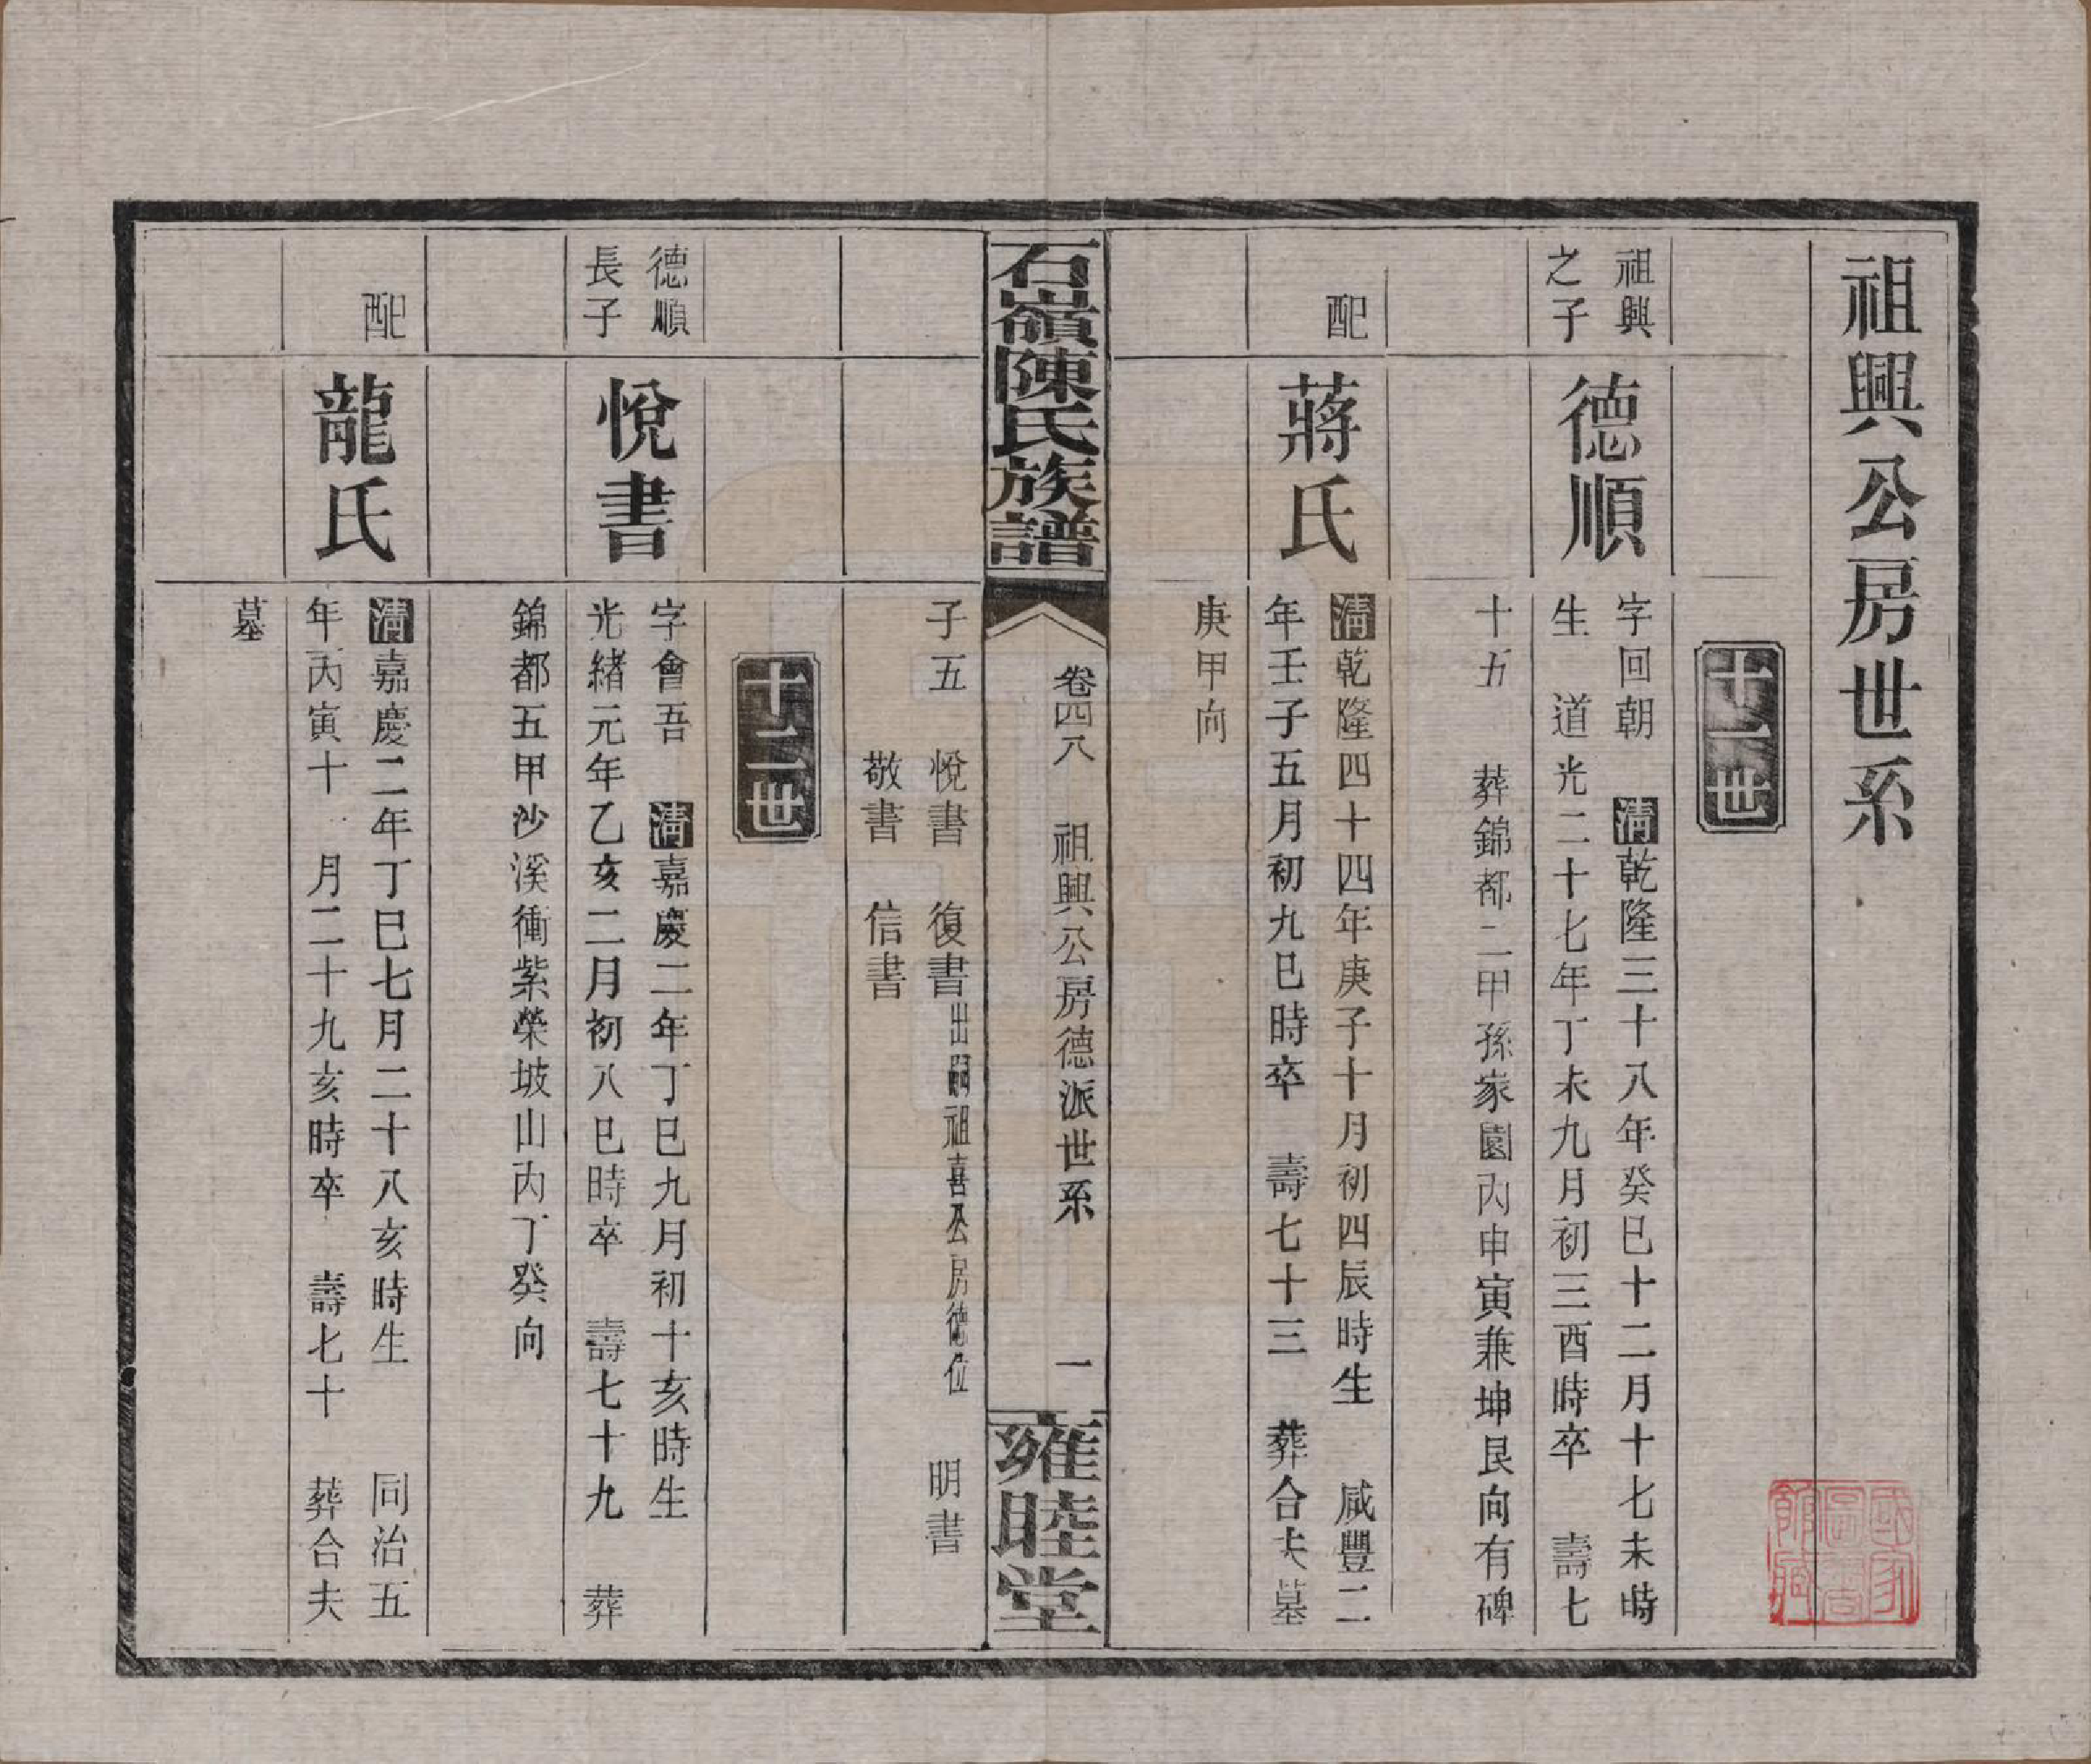 祖興公房世系
十一世
祖興
之子
德順
字回朝 清乾隆三十八年癸巳十二月十七未時
生 道光二十七年丁未九月初三酉時卒 壽七
十五 葬錦都二甲孫家園丙申寅兼坤艮向有碑
配
蔣氏
清乾隆四十四年庚子十月初四辰時生 咸豐二
年壬子五月初九巳時卒 壽七十三 葬合夫墓
庚甲向
石嶺陳氏族譜
卷四八 祖興公房德派世系 一
雍睦堂
子五 悅書 復書出嗣祖喜公房德位 明書
敬書 信書
十二世
德順
長子
悅書
字會吾 清嘉慶二年丁巳九月初十亥時生
光緒元年乙亥二月初八巳時卒 壽七十九 葬
錦都五甲沙溪衝紫榮坡山內丁癸向
配
龍氏
清嘉慶二年丁巳七月二十八亥時生 同治五
年丙寅十 月二十九亥時卒 壽七十 葬合夫
墓
國家
圖書
館藏